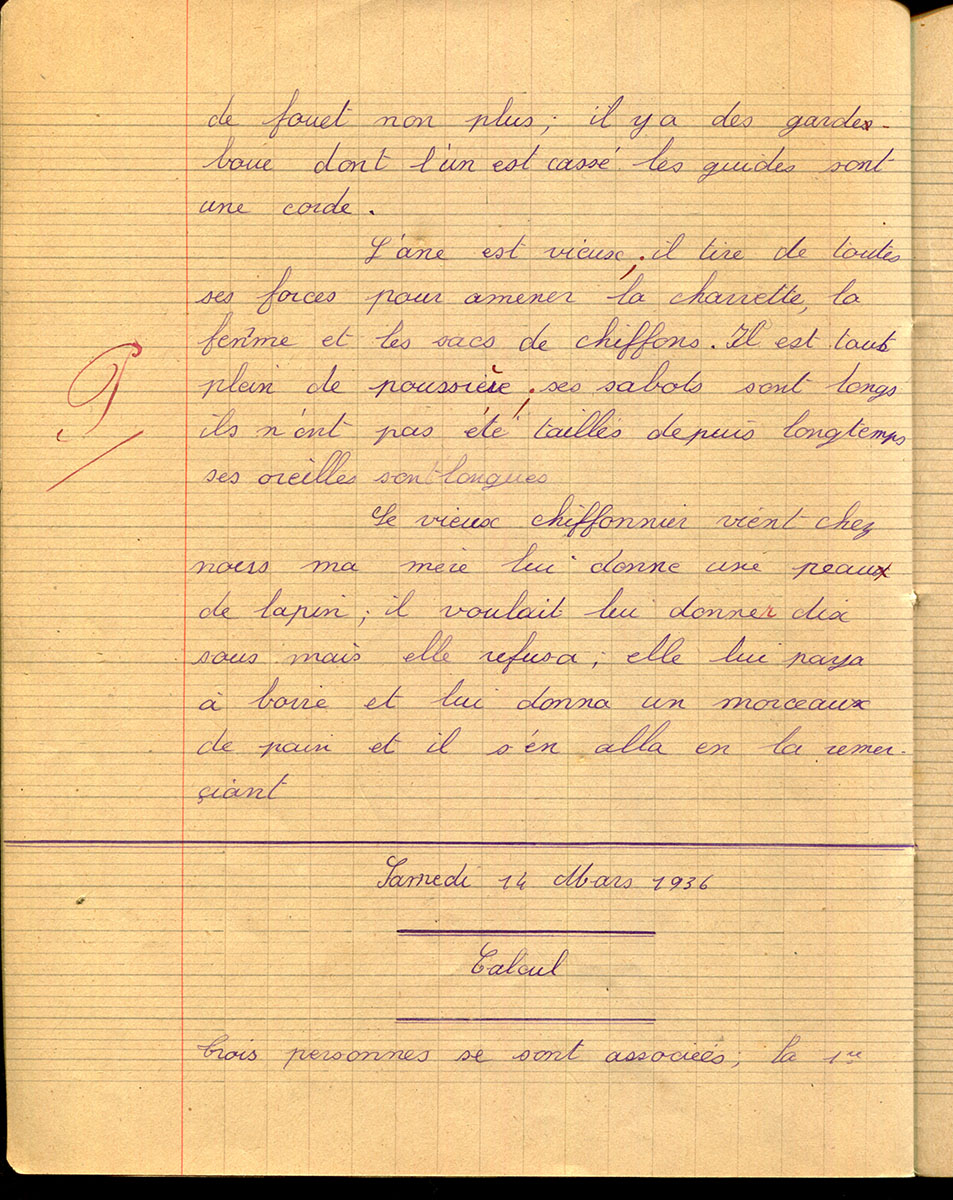 de fouet non plus; il y a des gardes-
boue dont l'un est cassé les guides sont
une corde.
L'ane est vieux; il tire de toutes
ses forces pour amener la charrette, la
femme et les sacs de chiffons. Il est tout
plein de poussière; ses sabots sont longs
ils n'ont pas été taillés depuis longtemps
ses oreilles sont longues
Le vieux chiffonnier vient chez
nous ma mère lui donne une peaux
de lapin; il voulait lui donner dix
sous mais elle refusa; elle lui paya
à boire et lui donna un morceaux
de pain et il s'en alla en la remer-
çiant
Samedi 14 Mars 1936
Calcul
Trois personnes se sont associées; la 1re